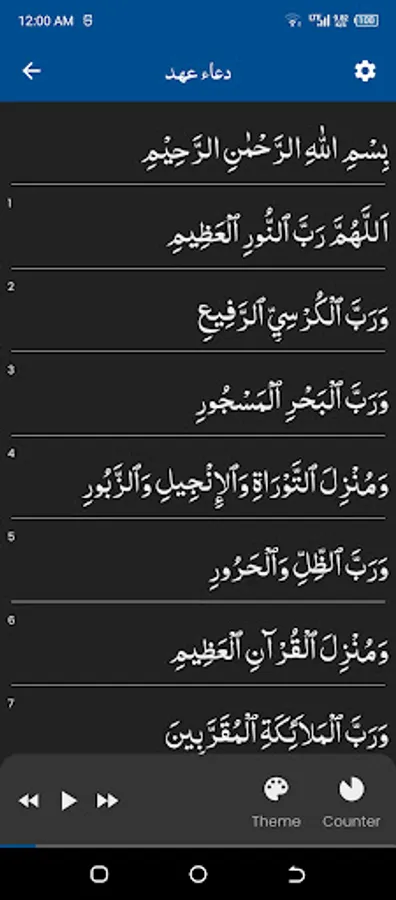 12:00 AM
100
دعاء عهد
بِسْمِ اللهِ الرَّحْمٰنِ الرَّحِيْمِ
1
اَللَّهُمَّ رَبَّ ٱلنُّورِ ٱلْعَظِيمِ
2
وَرَبَّ ٱلْكُرْسِيِّ ٱلرَّفِيعِ
3
وَرَبَّ ٱلْبَحْرِ ٱلْمَسْجُورِ
4
وَمُنْزِلَ ٱلتَّوْرَاةِ وَٱلإِنْجِيلِ وَٱلزَّبُورِ
5
وَرَبَّ ٱلظِّلِّ وَٱلْحَرُورِ
6
وَمُنْزِلَ ٱلْقُرْآنِ ٱلْعَظِيمِ
7
وَرَبَّ ٱلْمَلاَئِكَةِ ٱلْمُقَرَّبِينَ
Theme Counter